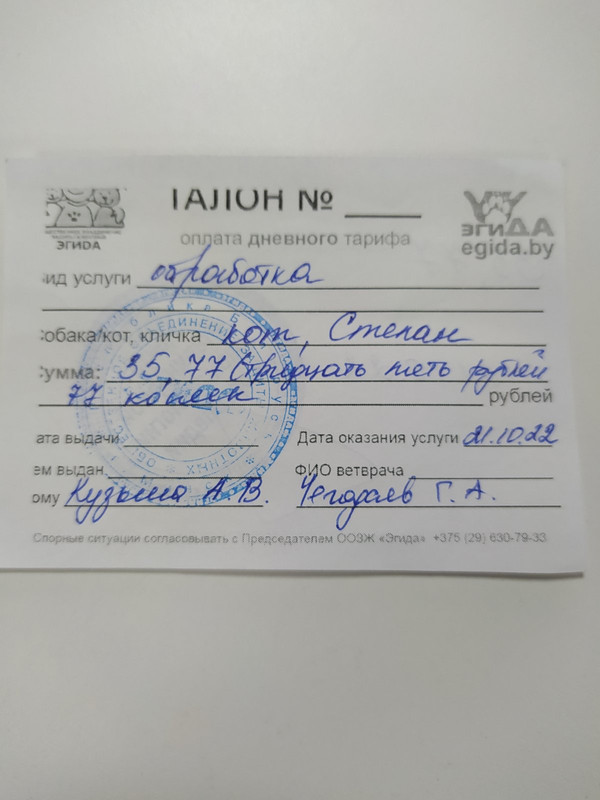 ТАЛОН № ____
ЭГИДА
ЭГИДА
egida.by
оплата дневного тарифа
ид услуги обработка
обака/кот, кличка кот, Степан
умма: 35,77 (тридцать пять рублей
77 копеек рублей
ата выдачи Дата оказания услуги 21.10.22
ем выдан. ФИО ветврача
ому Кузьма А.В. Чегодаев Г.А.
Спорные ситуации согласовывать с Председателем ООЗЖ «Эгида» +375 (29) 630-79-33